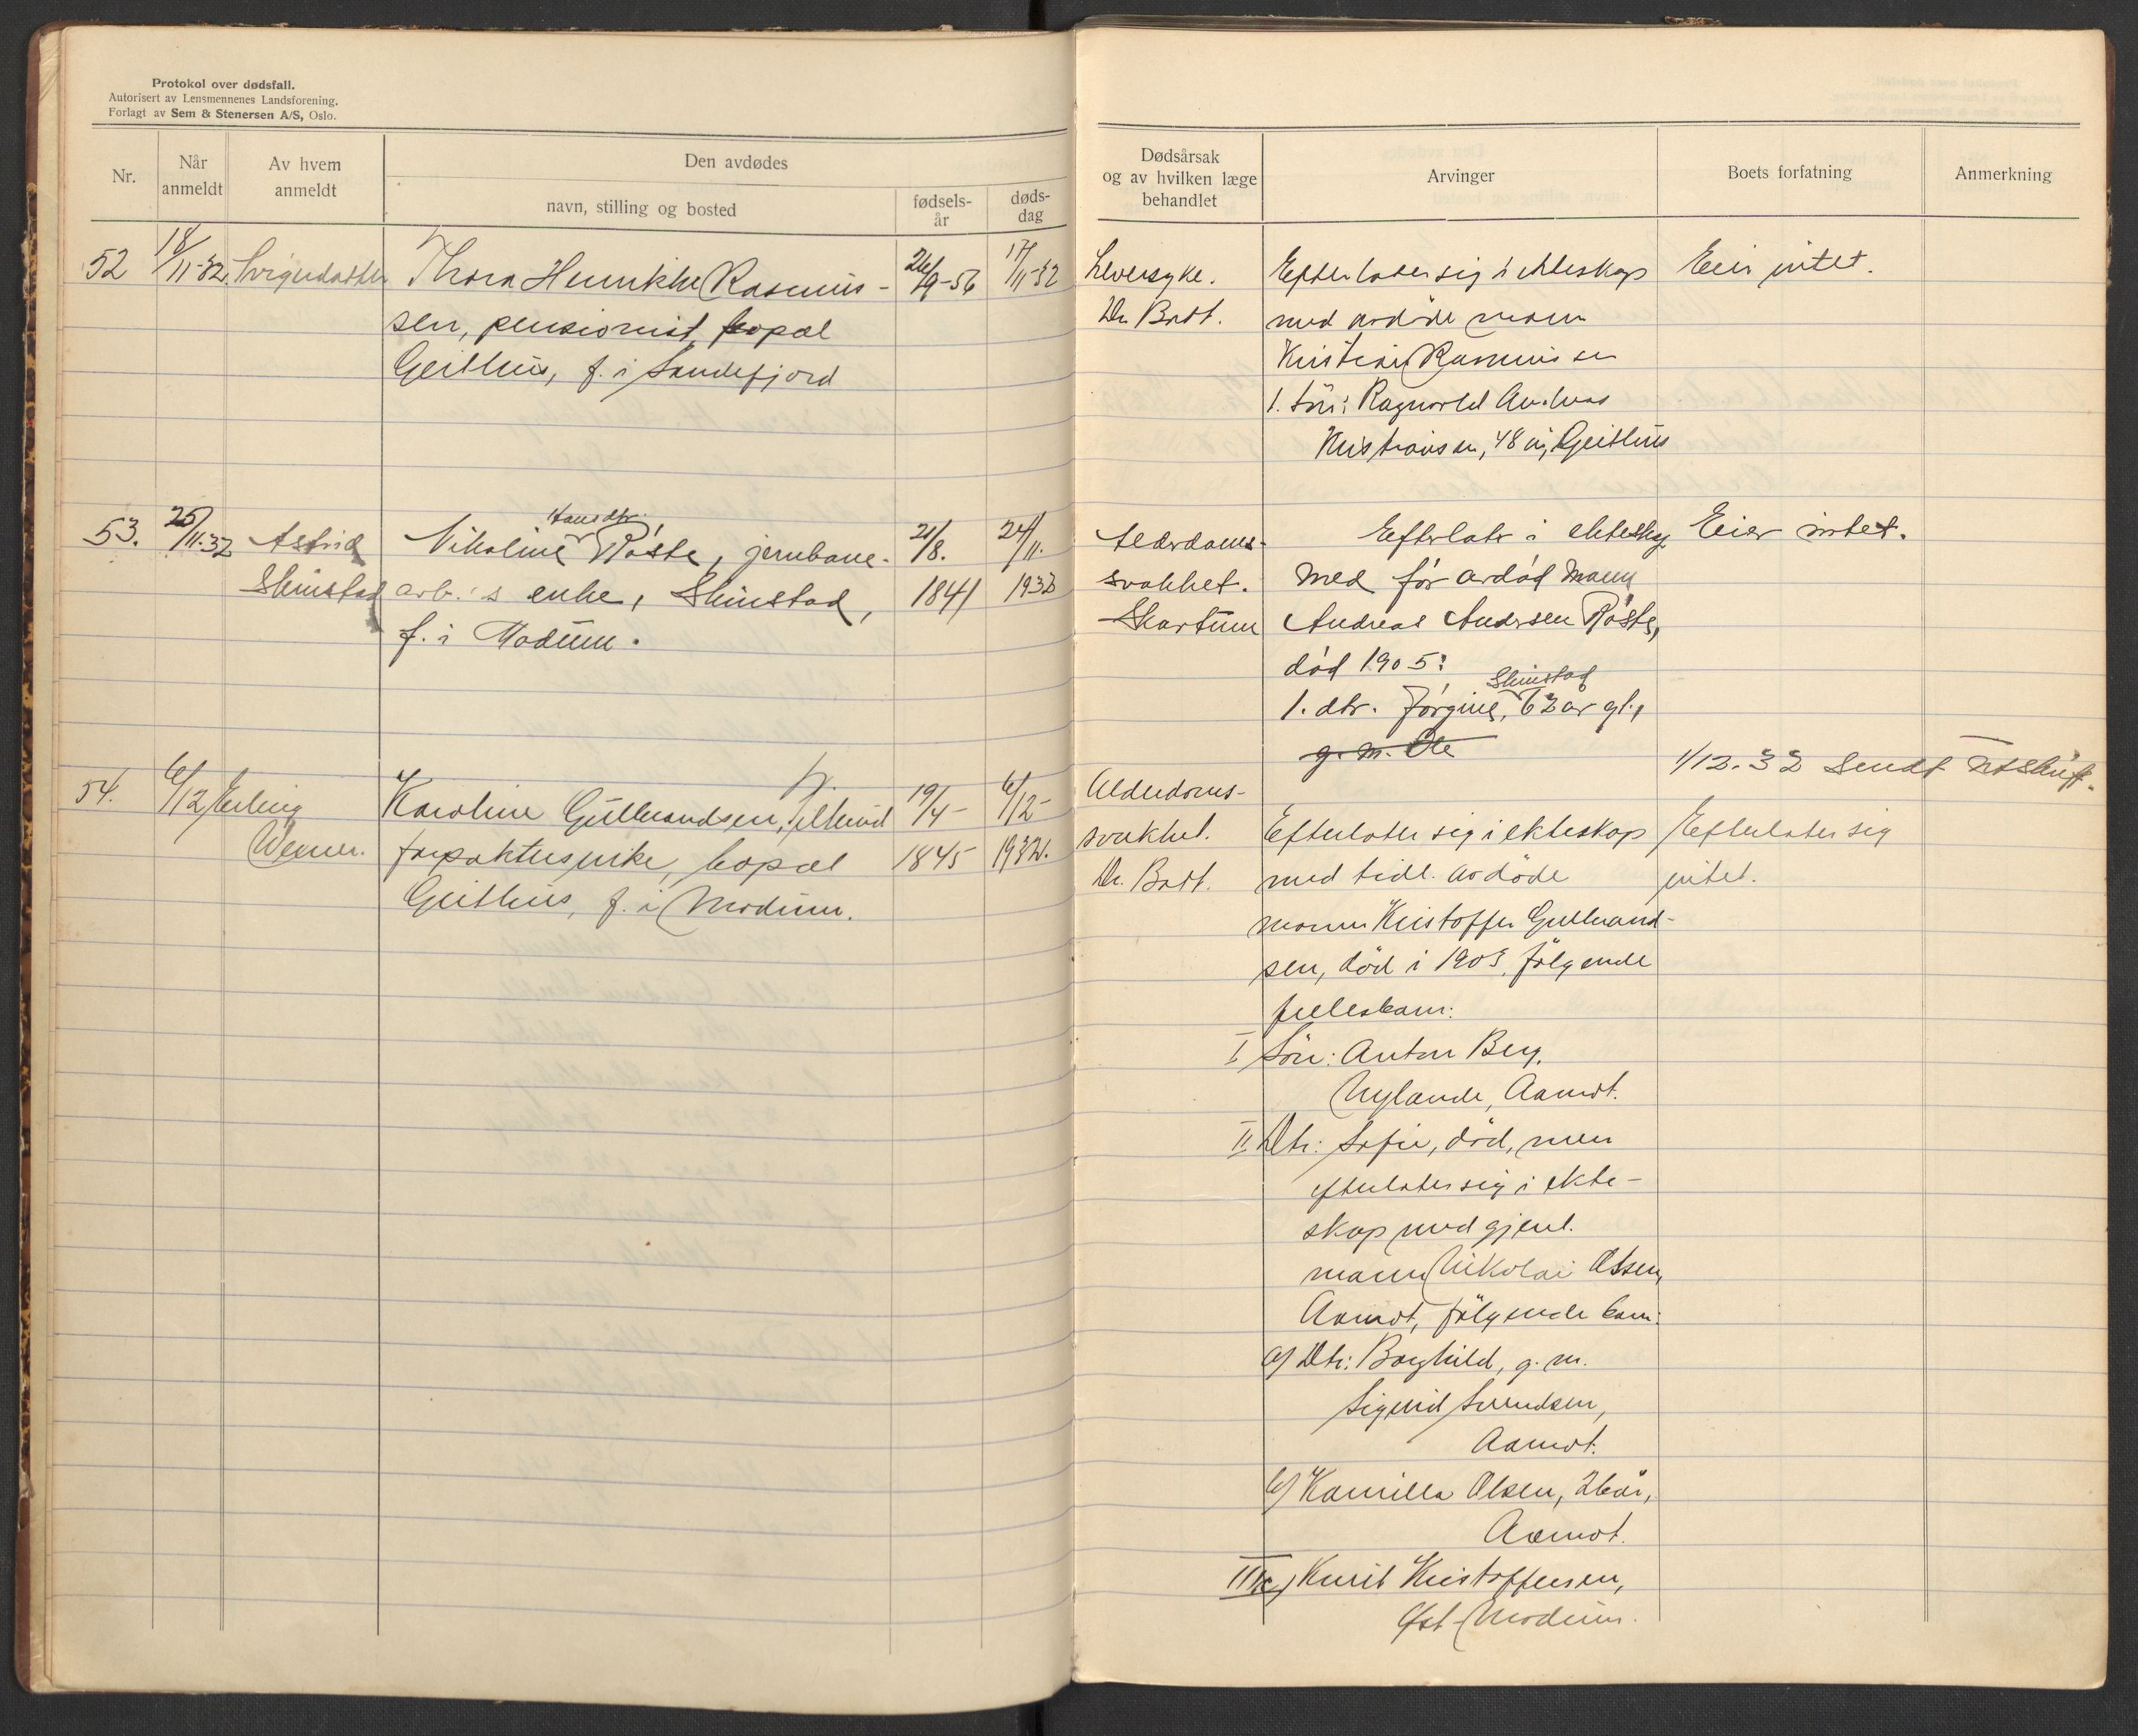 Protokol over dødsfall.
Autorisert av Lensmennenes Landsforening.
Forlagt av Sem & Stenersen A/S, Oslo.
Nr.
Når anmeldt
Av hvem anmeldt
Den avdødes
navn, stilling og bosted
fødsels-år
døds-dag
Dødsårsak
og av hvilken læge
behandlet
Arvinger
Boets forfatning
Anmerkning
52
18/11-32.
Svigerdatter
Thora Henrikke Rasmus-
sen, pensionist, bopæl
Geithus, f. i Sandefjord
26/9-56
17/11-32
Leversyke.
Dr. Bott.
Efterlater sig i ekteskap
med avdöde mann
Kristian Rasmussen
1. Sön: Ragnvald Andreas
Kristiansen, 48 år, Geithus
Eier intet.
53.
25/11.32
Astrid
Skinstad
Hansdtr.
Nikoline Röste, jernbane-
arb.'s enke, Skinstad,
f. i Modum.
21/8.
1841
24/11.
1932
Alderdoms-
svakhet.
Skartum
Efterlatr i ektesk.
med för avdöd mann
Andreas Andersen Röste,
död 1905:
Skinstad
1. dtr. Jörgine, 62 år gl.,
g. m. Ole
Eier intet.
1/12.32 Sendt utskrift.
54.
6/12
Erling
Werner.
Karoline Gulbrandsen,
forpakterenke, bopæl
Geithus, f. i Modum.
19/4-
1845
6/12-
1932.
Alderdoms-
svakhet.
Dr. Bott.
Efterlater sig i ekteskap
med tidl. avdöde
mann Kristoffer Gulbrand-
sen, död i 1903, fölgende
fellesbarn:
I Sön: Anton Berg,
Nylande, Aamot.
II Dtr: Sofie, död, men
efterlater sig i ekte-
skap med gjenl.
mann Nikolai Olsen,
Aamot, fölgende barn:
a) Dtr: Borghild, g. m.
Sigurd Svendsen,
Aamot.
b) Kamilla Olsen, 26 år,
Aamot.
III Kristoffersen,
Øst-Modum.
Efterlater sig
intet.